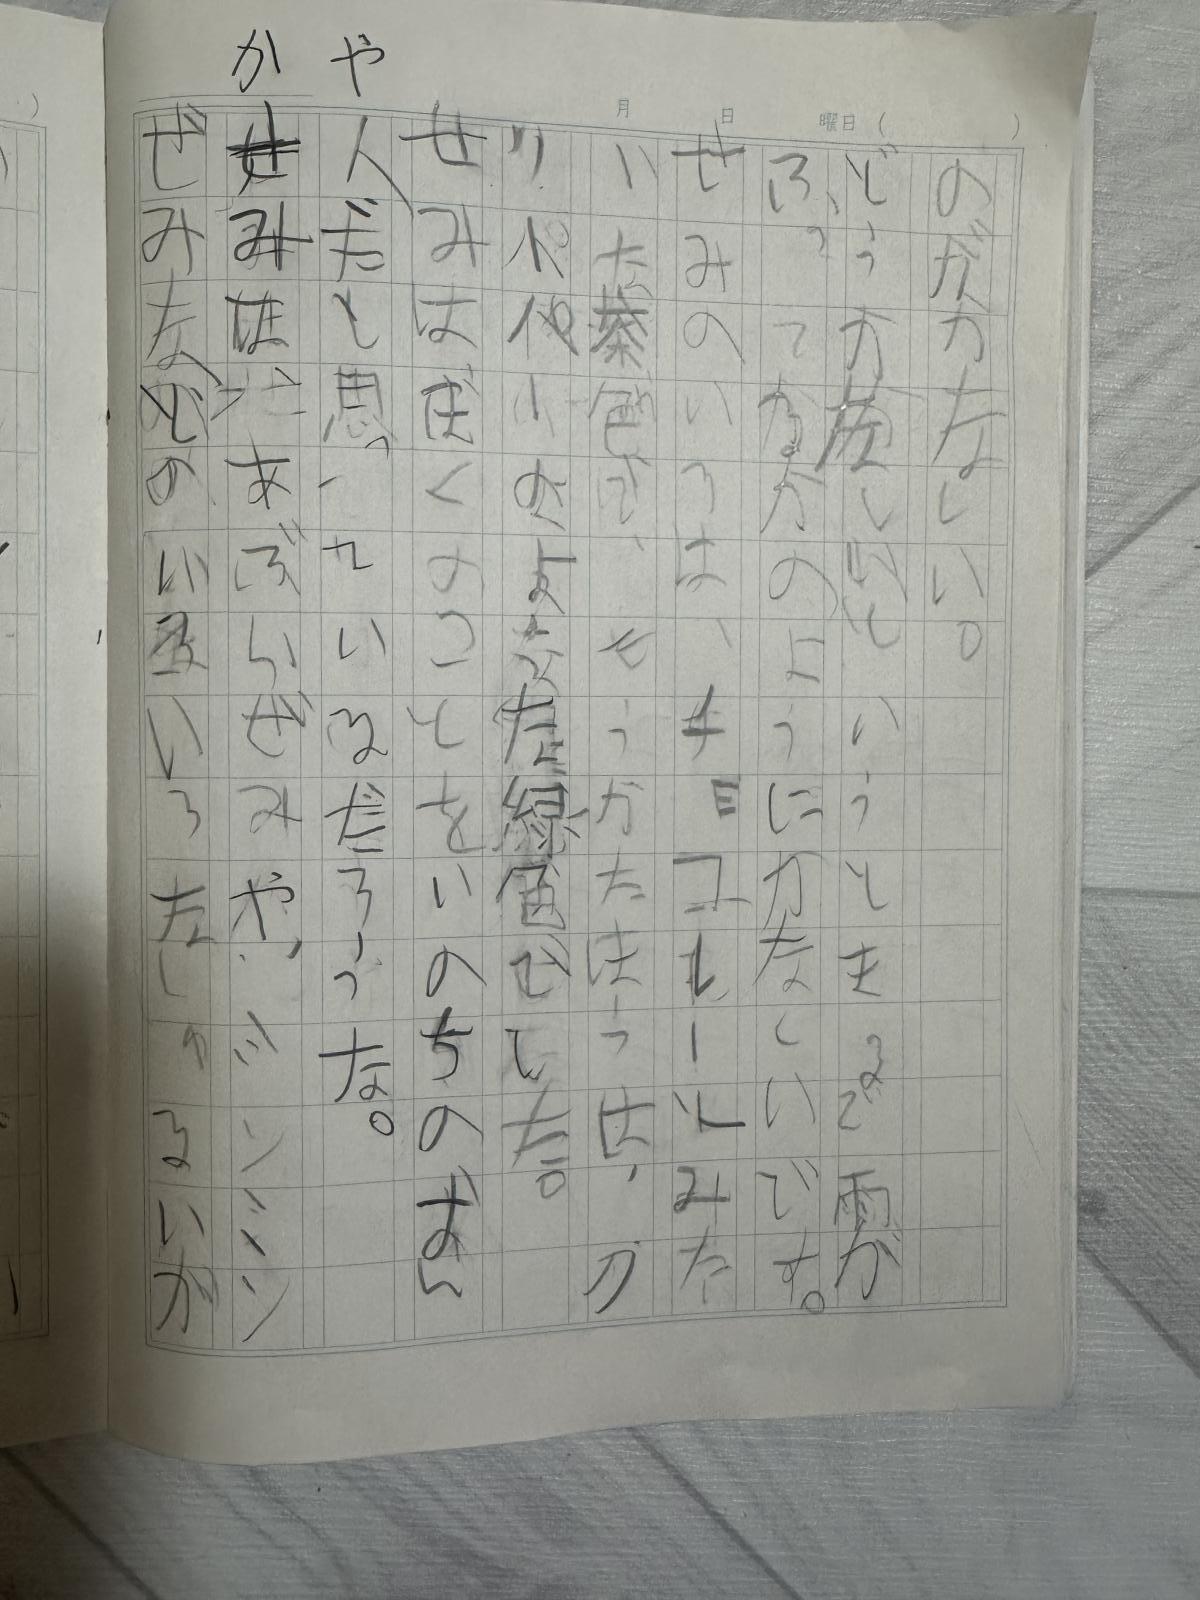 月 日 曜日 ( )
のがかなしい。
どう いうとまるで雨が
ふってるかのようにかなしいです。
せみのいろは、チョコ みた
いな茶色で、もうかたほうは、カ
のような緑色でした。
せみはぼくのことをいのちのおん
人だと思っているだろうな。
や
か
あぶらぜみや、ミンミン
ぜみなどのいろいろなしゅるいが